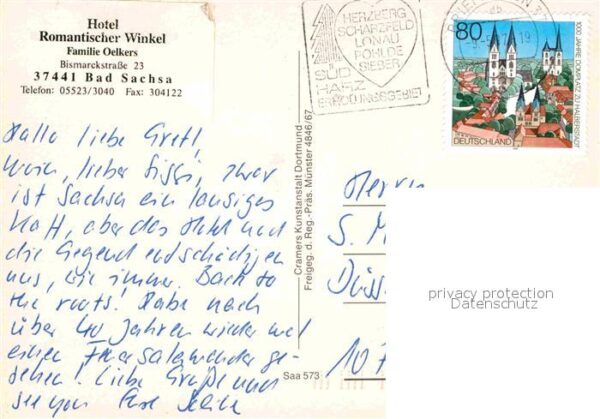 Hotel
Romantischer Winkel
Familie Oelkers
Bismarckstraße 23
37441 Bad Sachsa
Telefon: 05523/3040 Fax: 304122
HERZBERG
SCHARZFELD
LONAU
POHLDE
SIEBER
SÜD
HARZ
ERHOLUNGSGEBIET
80
1000 JAHRE DOMPLATZ ZU HALBERSTADT
DEUTSCHLAND
Hallo liebe Gretl,
lieber Siggi, zwar
ist Sachsa ein lausiges
Kaff, aber das Hotel und
die Gegend entschädigen
uns, wie immer. Back to
the roots! Habe nach
über 40 Jahren wieder mal
einen Feuersalamander ge-
sehen! Liebe Grüße und
see you
Cramers Kunstanstalt Dortmund
Freigeg. d. Reg.-Präs. Münster 4846/67
Saa 573
Herrn
S.
Düss
privacy protection
Datenschutz